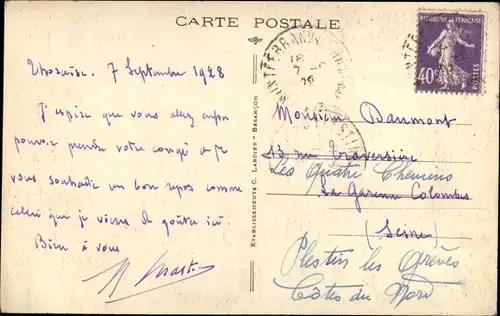 CARTE POSTALE
7 Septembre 1928
J'espère que vous allez enfin
pouvoir prendre votre congé & je
vous souhaite un bon repos comme
celui que je viens de goûter ici.
Bien à vous
ETABLISSEMENTS C. LARDIER - BESANÇON
REPUBLIQUE FRANÇAISE
40c
POSTES
Monsieur Daumont
13 rue Traversière
Les Quatre Chemins
La Garenne Colombes
(Seine)
Plestin les Grèves
Côtes du Nord